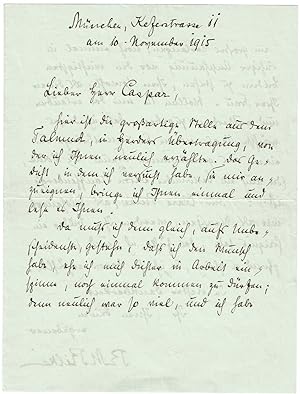 München, Keferstrasse 11
am 10. November 1915
Lieber Herr Caspar,
hier ist die großartige Stelle aus dem
Talmud, in Herders Übertragung, von
der ich Ihnen neulich erzählte. Das Ge-
dicht, in dem ich versucht habe, sie mir an-
zueignen, bringe ich Ihnen einmal und
lese es Ihnen.
Da muß ich denn gleich, aufs Unbe-
scheidenste, gestehn, daß ich den Wunsch
habe, eh ich mich dichter in Arbeit ein-
spinne, noch einmal kommen zu dürfen;
denn neulich war so viel, und ich habe